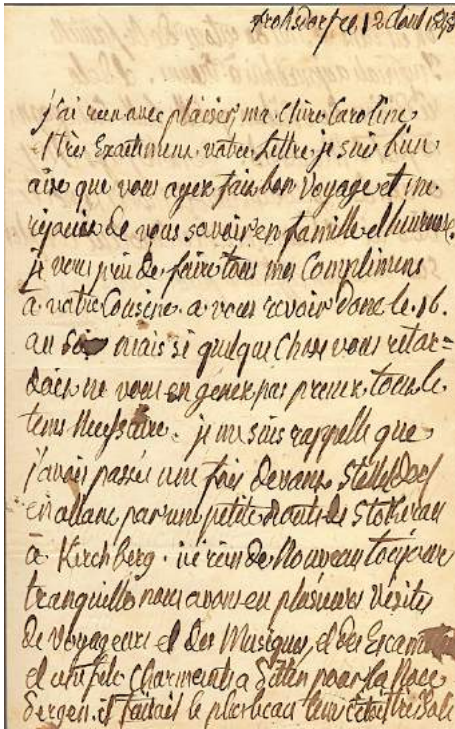 frohsdorf ce 12 aout 1848
j'ai reçu avec plaisir, ma chère Caroline
très Exactemens votre Lettre, je suis bien
aise que vous ayez fait bon Voyage et me
rejouie de vous savoir en famille et heureuse.
je vous prie de faire tous mes Complimens
à votre Cousine. a vous revoir donc le 16.
au soir mais si quelque chose vous retar=
doien ne vous en génez pas prenez tous le
tems Necessaire. je me suis rappellé que
j'avois passée une fois devant
en allant par une petite route de Stokerau
à Kirchberg. ici rien de Nouveau toujours
tranquille nous avons eu plusieurs Visites
de Voyageurs et des Musiques, et des
et une fete Charmente a pour la
il faisait le plus beau tems c'était très